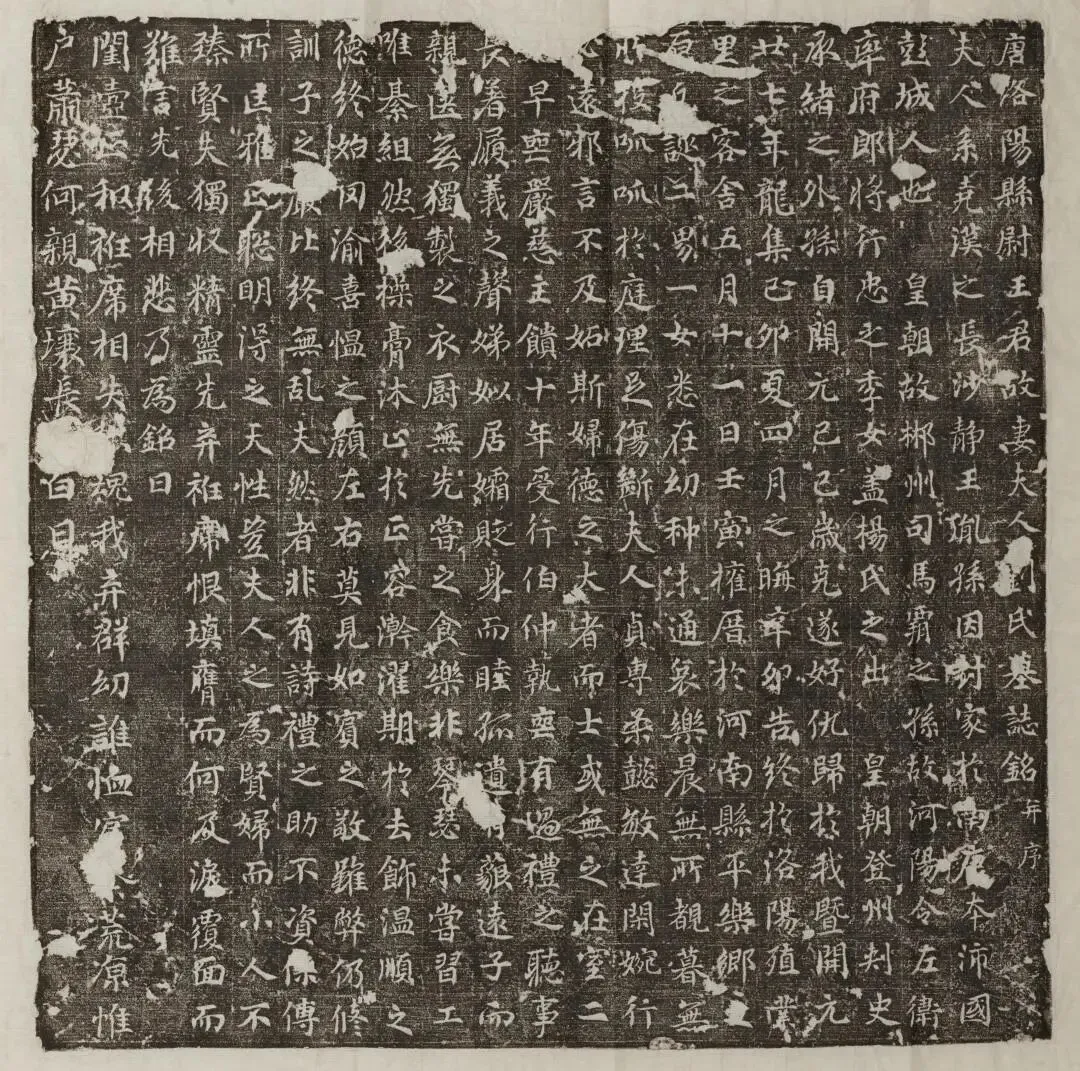 唐洛陽縣尉王君故妻夫人劉氏墓誌銘并序
夫人系堯漢之長沙静王胤孫因封家於南本沛國
彭城人也皇朝故郴州司馬霸之孫故河陽令左衛
率府郎將行忠之季女盖楊氏之出皇朝登州刾史
承緒之外孫自開元己巳歳克遂好仇歸於我暨開元
廿七年龍集己夘夏四月之晦辛夘告終於洛陽殖業
里之客舍五月十一日壬寅權厝於河南縣平樂鄉之
原二男一女悉在幼种未通哀樂晨無所覩暮無
所呱呱於庭理足傷斷夫人貞專柔懿敏達閑婉行
遠邪言不及妬斯婦德之大者而士或無之在室二
早喪嚴慈主饋十年受行伯仲執喪有過禮之聽事
長着屐義之聲娣姒居孀貶身而睦孤遺藐遠子而
親医無獨製之衣厨無先嘗之食樂非琴瑟未嘗習工
唯綦組然後操膏沐止於正容澣濯期於去飾温順之
德終始罔渝喜愠之顔左右莫見如賓之敬雖弊仍脩
訓子之嚴比終無乱夫然者非有詩禮之助不資保傅
所匡雅正聦明得之天性豈夫人之為賢婦而小人不
臻賢失獨収精靈先弃袵席恨填膺而何及淚覆面而
難言先後相悲乃為銘曰
閨壼袵席相失魂我弃群幼誰恤荒原惟
户蕭瑟何親黄壤長白日